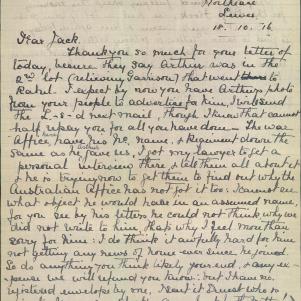 Northcare
Lewes
18.10.16
Dear Jack.
Thank you so much for your letter of
today, because they say Arthur was in the
2nd lot (relieving Garrison) that went to
Rabul. I expect by now you have Arthur's photo
from your people to advertise for him, I will send
the £-s-d next mail, though I know that cannot
half repay you for all you have done - The War
Office, have his Nr., name, & Regiment down the
same as he gave us, I got my lawyer to get a
personal interview there, & told them all about it
& he is trying now to get them to find out why the
Australian Office has not got it too: I cannot see
what object he would have in an assumed name,
for you see by his letters he could not think why we
did not write to him, that's why I feel more than
sorry for him: I do think it awfully hard for him
not getting any news of home ever since he joined.
So do anything you think likely, your end, & any ex-
pense we will send you know: but I have no
registered envelope by me, Next it Driest who is